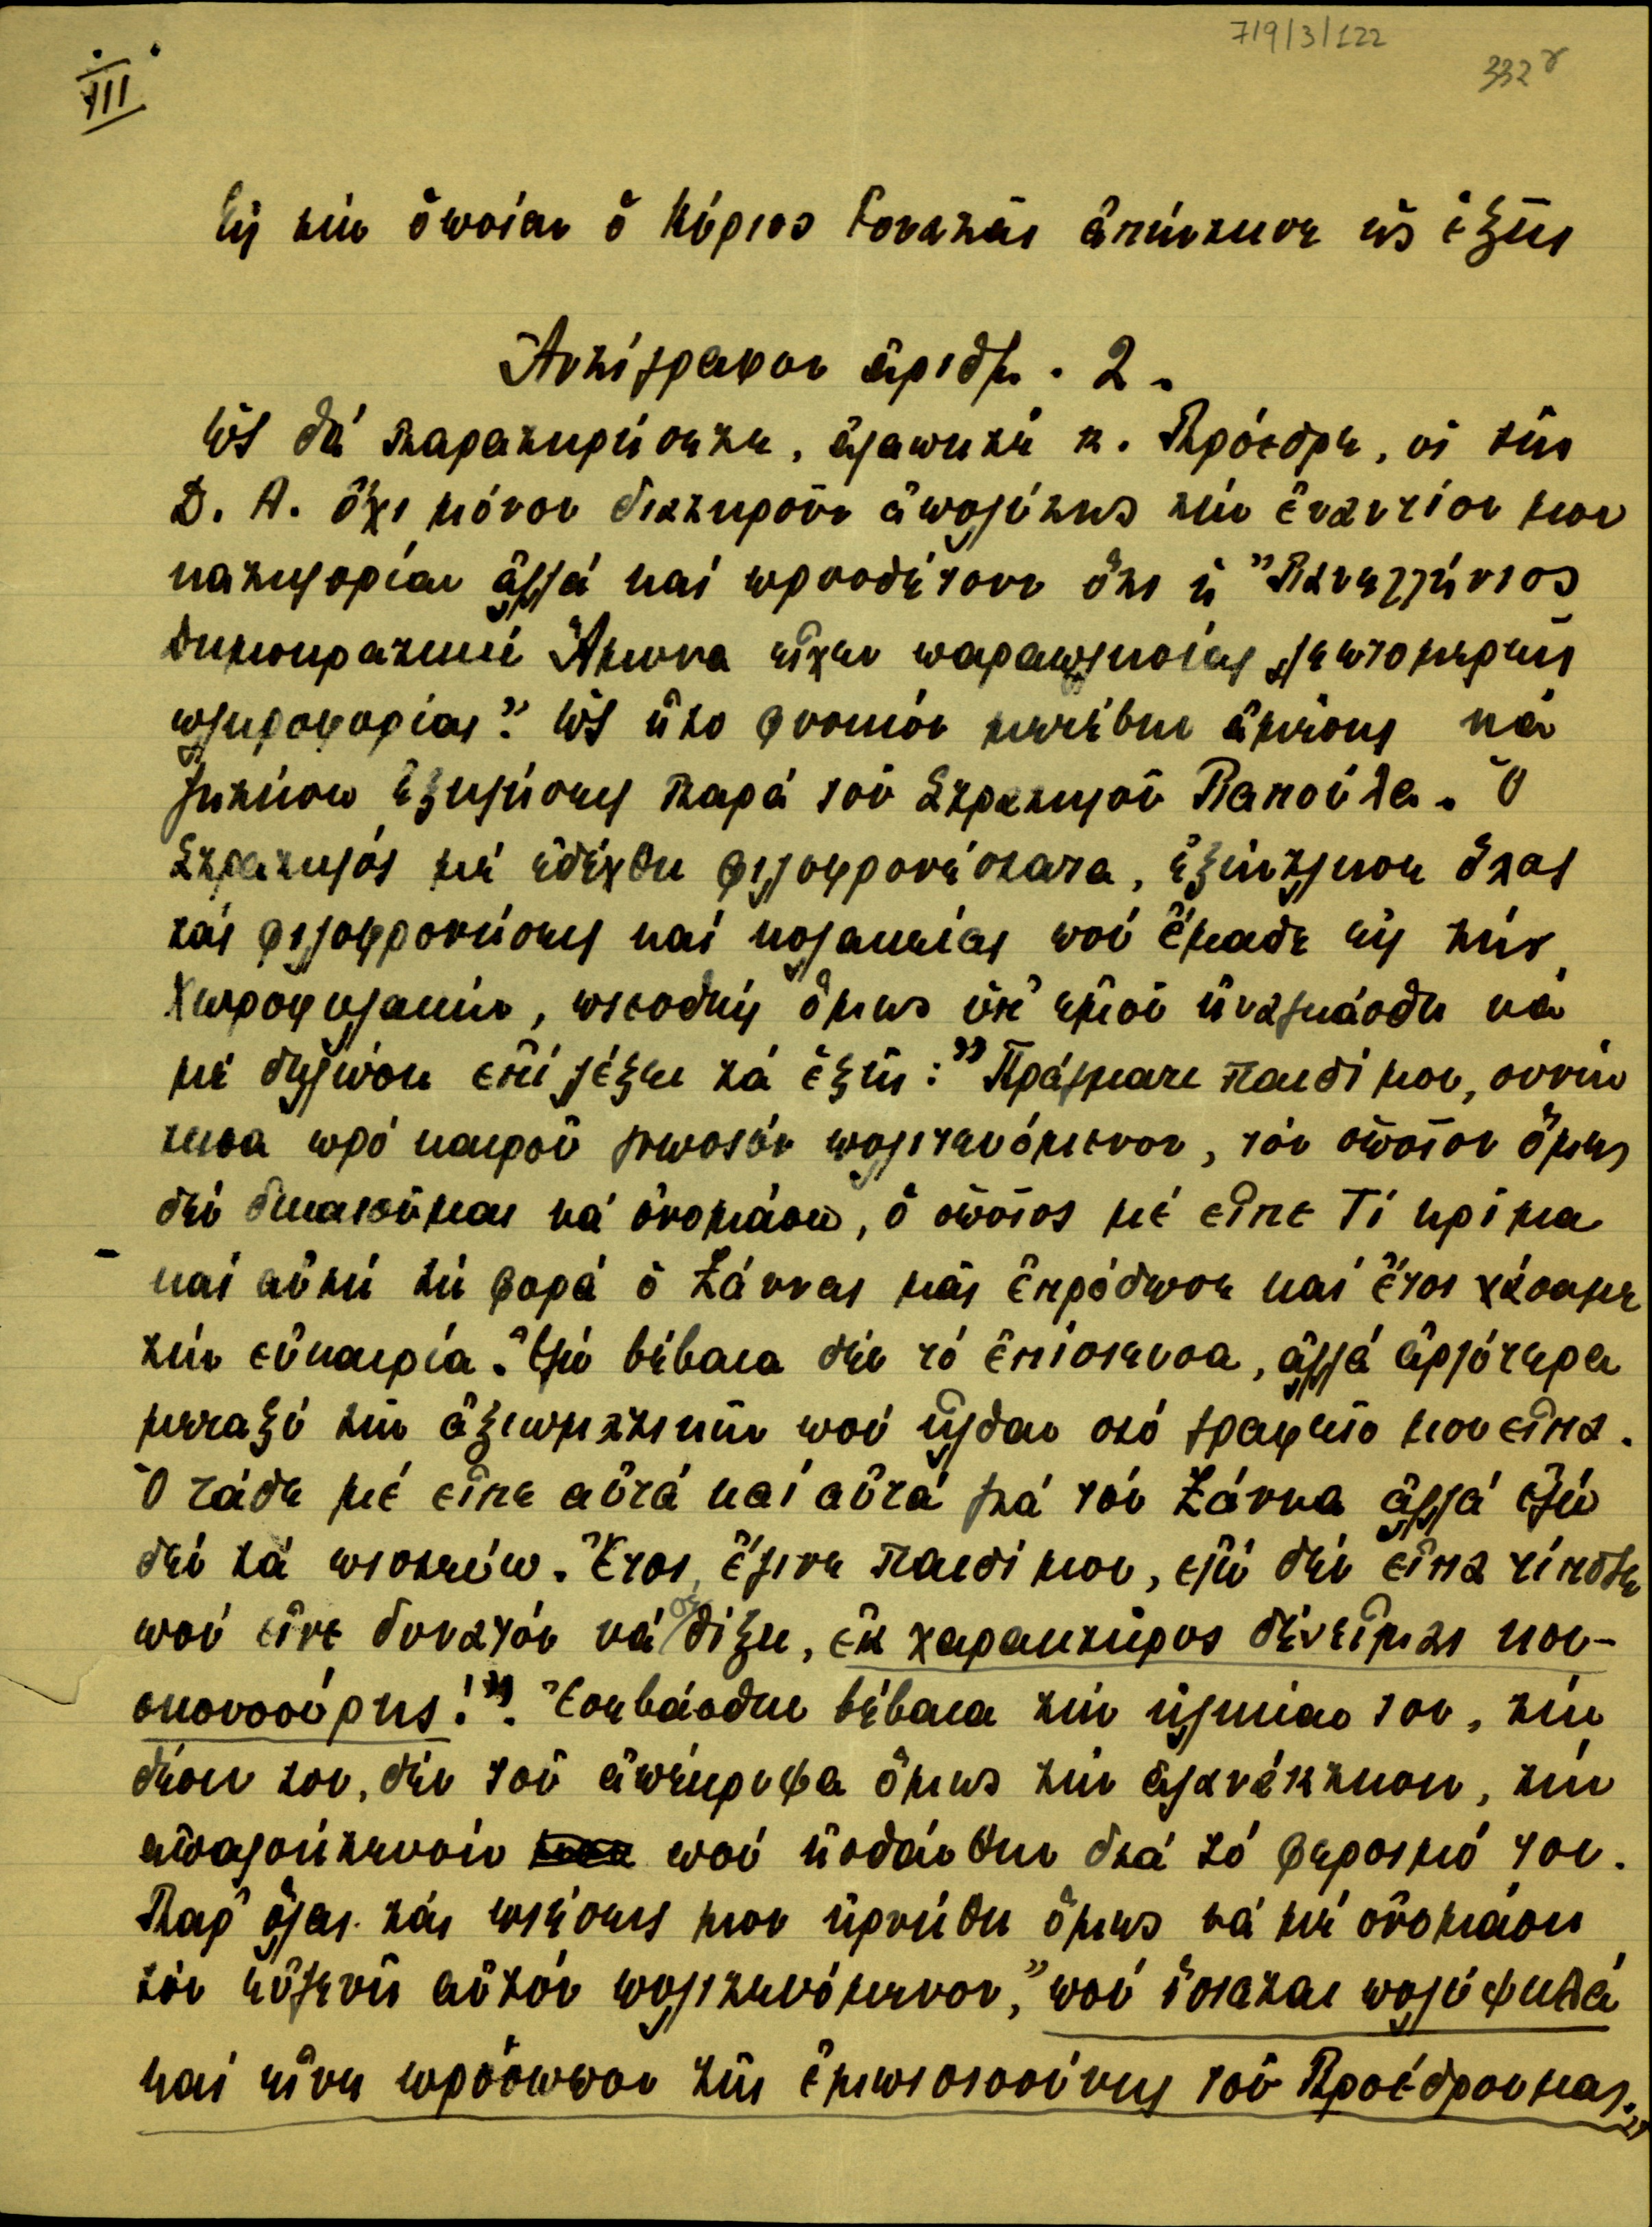 719/3/122
332γ
VIII
Εἰς τὴν ὁποίαν ὁ Κύριος Γονατᾶς ἀπήντησε ὡς ἑξῆς
Ἀντίγραφον ἀριθμ. 2.
Ὡς θά παρατηρήσετε, ἀγαπητέ κ. Πρόεδρε, οἱ τῆς
Δ. Α. ὄχι μόνον διατηροῦν ἀπολύτως τήν ἐναντίον μου
κατηγορίαν ἀλλά καί προσθέτουν ὅτι ἡ "Πανελλήνιος
Δημοκρατική Ἄμυνα εἶχεν παραπλησίας λεπτομερεῖς
πληροφορίας". Ὡς ἦτο φυσικόν μετέβην ἀμέσως νά
ζητήσω ἐξηγήσεις παρά τοῦ Στρατηγοῦ Πακούλα. Ὁ
Στρατηγός μέ ἐδέχθη φιλοφρονέστατα, ἐξήντλησε ὅλας
τάς φιλοφρονήσεις καί κολακείας πού ἔμαθε εἰς τήν
Χωροφυλακήν, πιεσθείς ὅμως ὑπ' ἐμοῦ ἠναγκάσθη νά
μέ δηλώση ἐπί λέξει τά ἑξῆς: "Πράγματι παιδί μου, συνήν
τησα πρό καιροῦ γνωστόν πολιτευόμενον, τόν ὁποῖον ὅμως
δέν δικαιοῦμαι νά ὀνομάσω, ὁ ὁποῖος μέ εἶπε Τί κρίμα
καί αὐτή τή φορά ὁ Ζάννας μᾶς ἐπρόδωσε καί ἔτσι χάσαμε
τήν εὐκαιρία. Ἐγώ βέβαια δέν τό ἐπίστευσα, ἀλλά ἀργότερα
μεταξύ τῶν ἀξιωματικῶν πού ἦλθαν στό γραφεῖο μου εἶπα.
Ὁ τάδε μέ εἶπε αὐτά καί αὐτά γιά τόν Ζάννα ἀλλά ἐγώ
δέν τά πιστεύω. Ἔτσι, ἔγινε παιδί μου, ἐγώ δέν εἶπα τίποτε
πού εἶνε δυνατόν νά σέ θίξη, ἐκ χαρακτῆρος δέν εἶμαι κου-
σκουσούρης!". Ἐσεβάσθην βέβαια τήν ἡλικίαν του, τήν
θέσιν του, δέν τοῦ ἀπέκρυψα ὅμως τήν ἀγανάκτησιν, τήν
ἀπογοήτευσιν πού ἠσθάνθην διά τό φέρσιμό του.
Παρ' ὅλας τάς πιέσεις μου ἠρνήθη ὅμως νά μέ ὀνομάση
τόν εὐγενῆ αὐτόν πολιτευόμενον, "πού ἵσταται πολύ ψηλά
καί εἶνε πρόσωπον τῆς ἐμπιστοσύνης τοῦ Προέδρου μας."